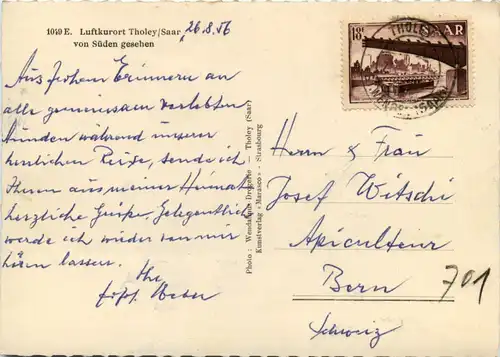 1049 E. Luftkurort Tholey/Saar
von Süden gesehen
26.8.56
Aus frohem Erinnern an
alle gemeinsam verlebten
Stunden während unserer
herrlichen Reise, sende ich
Ihnen aus meiner Heimat
herzliche Grüße. Gelegentlich
werde ich wieder von mir
hören lassen.
Ihr
Weber
Photo: Wendalinus Drogerie - Tholey (Saar)
Kunstverlag «Marasco» - Strasbourg
18F
SAAR
THOLEY
Herrn & Frau
Josef Witschi
Apiculteur
Bern
Schweiz
701